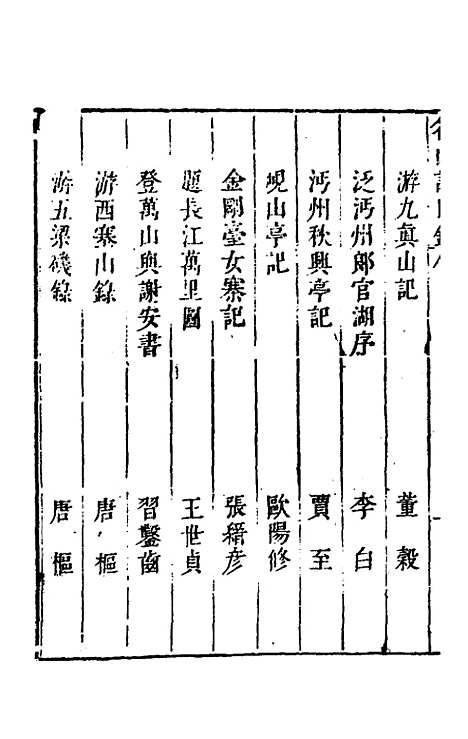 游九眞山記 董穀
泛沔州郎官湖序 李白
沔州秋興亭記 賈至
峴山亭記 歐陽修
金剛臺女寨記 張縉彦
題長江萬里圖 王世貞
登萬山與謝安書 習鑿齒
游西塞山錄 唐樞
游五梁磯錄 唐樞